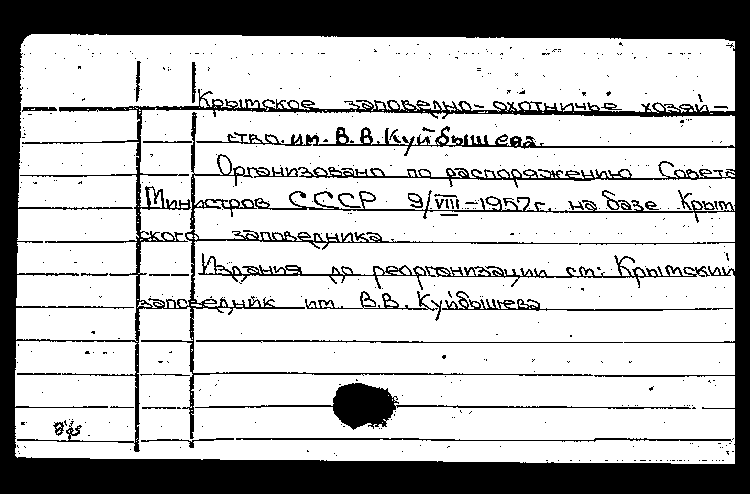 Крымское заповедно-охотничье хозяй-
ство им. В.В.Куйбышева.
Организовано по распоряжению Совета
Министров СССР 9/VIII-1957г. на базе Крым
ского заповедника.
Издания до реорганизации см: Крымский
заповедник им. В.В. Куйбышева